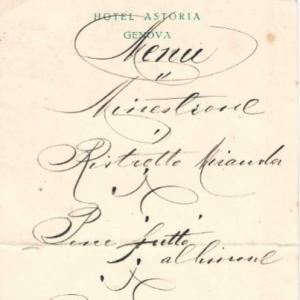 HOTEL ASTORIA
GENOVA
Menu
Minestrone
Ristretto Miranda
Pesce fritto
al limone